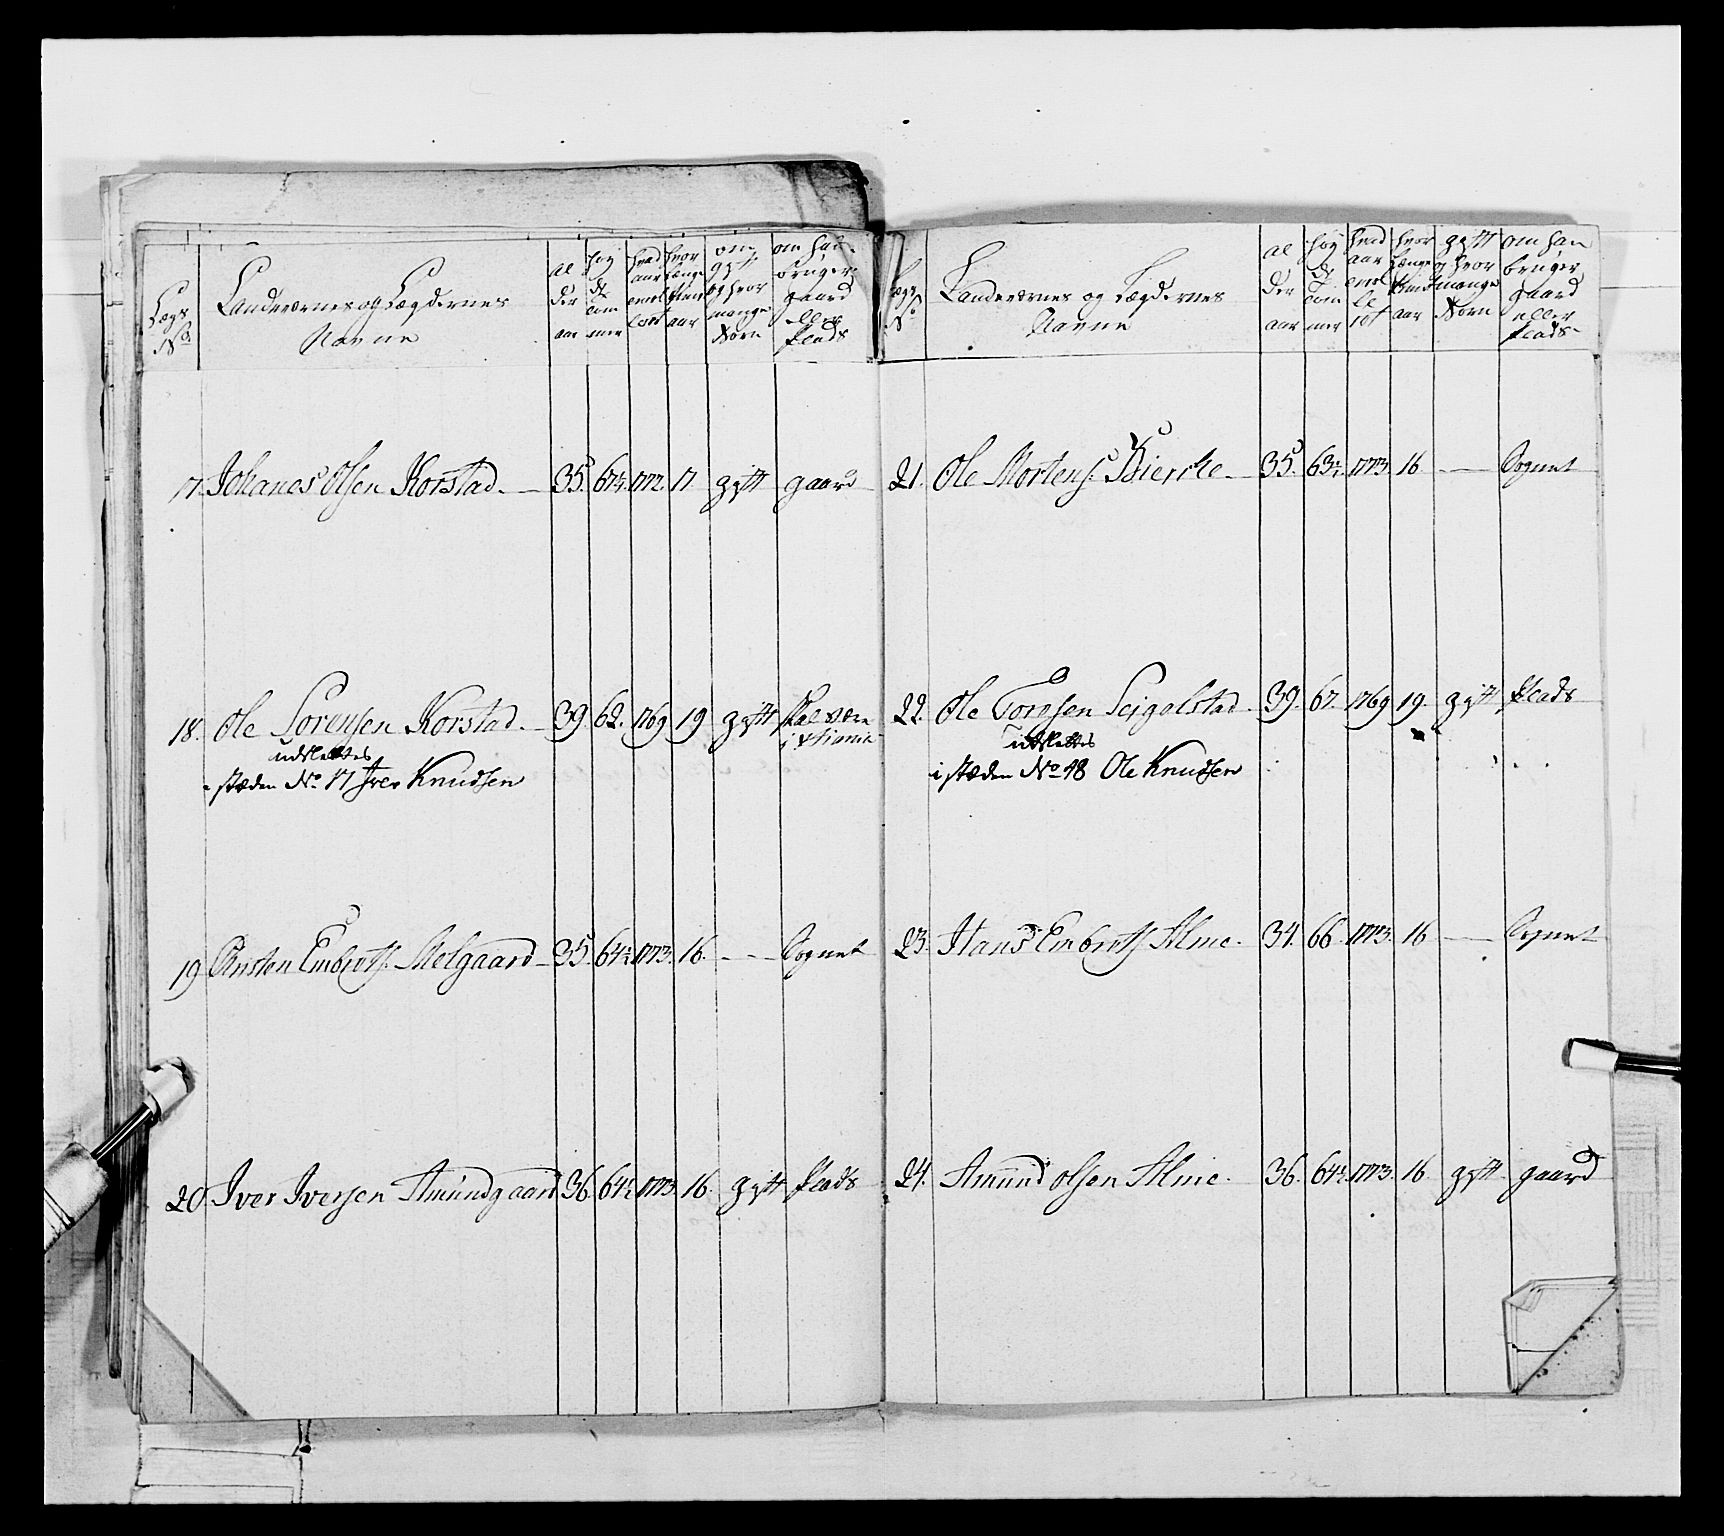 Lægs No.
Landeværnes og Lægdernes Navne
al der aar
høy de tom mer
hvad aar enrol leret
hvor længe tient aar
om gift og hvor mange Børn
om han bruger gaard eller Plads
17. Johanes Olsen Korstad. — 35. 67¼. 1772. 17 gift gaard
18. Ole Sörensen Korstad. — 39. 62. 1769 19 gift Skal være i Xtiania
udslettes
i stæden No. 17 Iver Knudsen
19 Ansten Embretf. Melgaard — 35. 64½ 1773. 16. - — Sognet
20. Iver Iversen Amundgaard 36. 64½ 1773. 16. gift Plads
Lægs No.
Landeværnes og Lægdernes Navne
al der aar
høy de Tom mer
hvad aar enrol le ret
hvor længe tient aar
gift og hvor mange Børn
om han bruger gaard eller Plads
21. Ole Mortens. Bierke — 35. 63½. 1773. 16 — Sognet
22. Ole Torersen Seigelstad. 39. 67. 1769 19. gift Plads
udslettes
i stæden No 48 Ole Knudsen
23. Hans Embretf. Alme. 34. 66. 1773. 16 — Sognet
24. Amund Olsen Alme. 36. 64½. 1773. 16. gift gaard